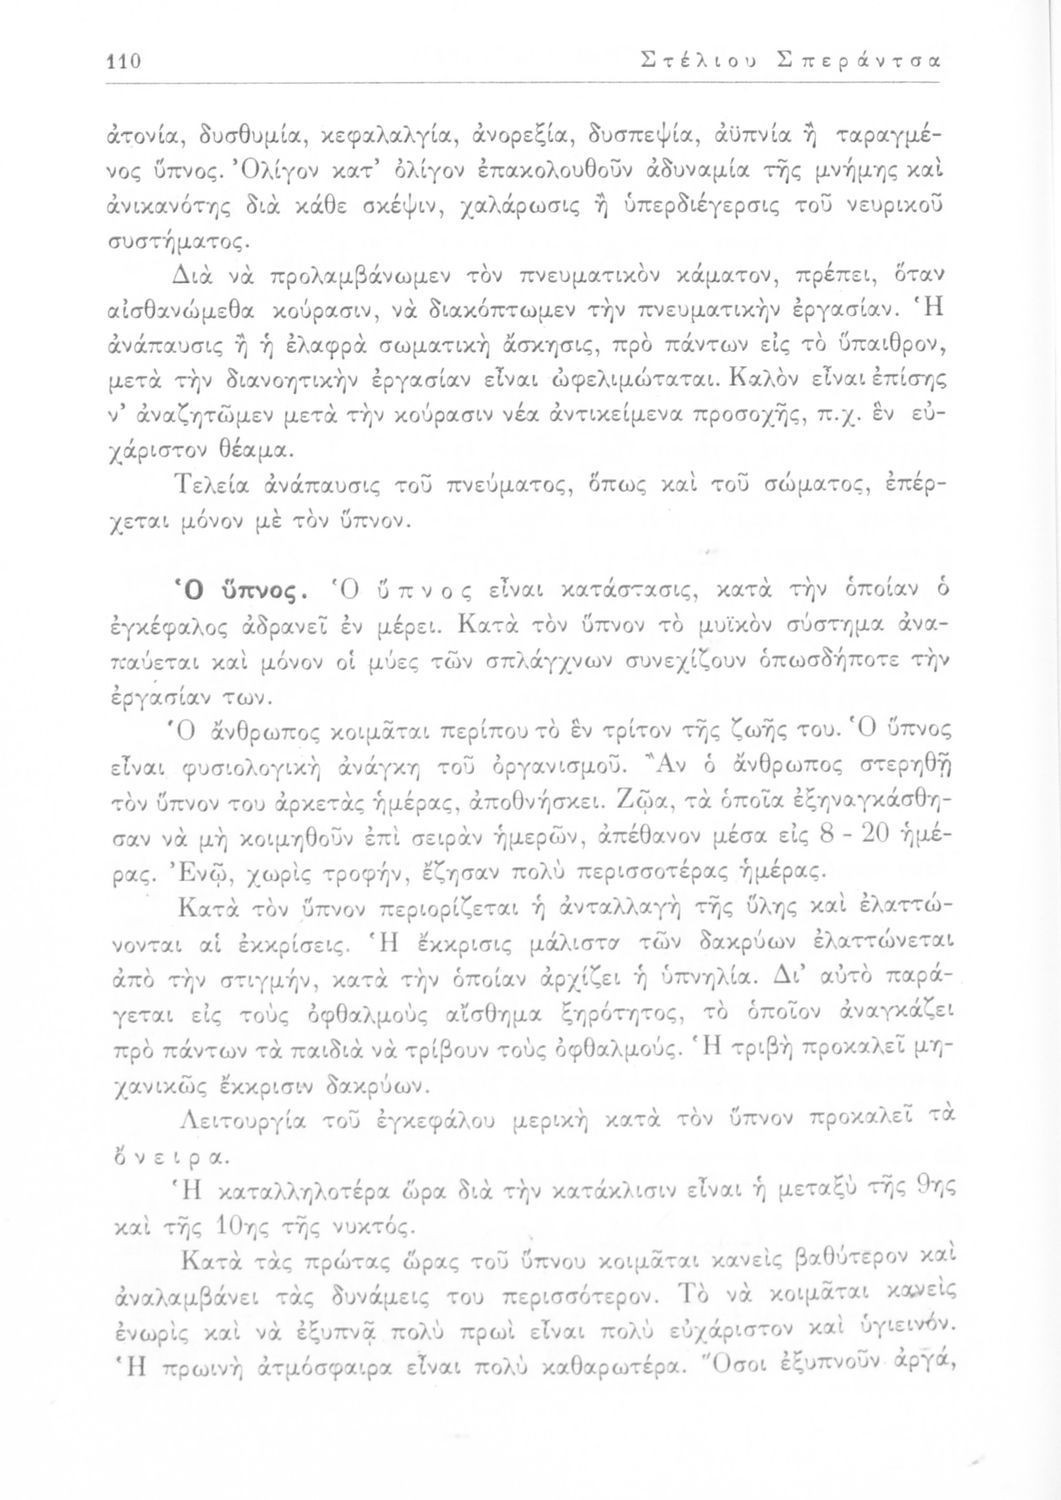 110 Στέλιου Σπεράντσα
ἀτονία, δυσθυμία, κεφαλαλγία, ἀνορεξία, δυσπεψία, ἀϋπνία ἢ ταραγμέ-
νος ὕπνος. Ὀλίγον κατ’ ὀλίγον ἐπακολουθοῦν ἀδυναμία τῆς μνήμης καὶ
ἀνικανότης διὰ κάθε σκέψιν, χαλάρωσις ἢ ὑπερδιέγερσις τοῦ νευρικοῦ
συστήματος.
Διὰ νὰ προλαμβάνωμεν τὸν πνευματικὸν κάματον, πρέπει, ὅταν
αἰσθανώμεθα κούρασιν, νὰ διακόπτωμεν τὴν πνευματικὴν ἐργασίαν. Ἡ
ἀνάπαυσις ἢ ἡ ἐλαφρὰ σωματικὴ ἄσκησις, πρὸ πάντων εἰς τὸ ὕπαιθρον,
μετὰ τὴν διανοητικὴν ἐργασίαν εἶναι ὠφελιμώταται. Καλὸν εἶναι ἐπίσης
ν’ ἀναζητῶμεν μετὰ τὴν κούρασιν νέα ἀντικείμενα προσοχῆς, π.χ. ἓν εὐ-
χάριστον θέαμα.
Τελεία ἀνάπαυσις τοῦ πνεύματος, ὅπως καὶ τοῦ σώματος, ἐπέρ-
χεται μόνον μὲ τὸν ὕπνον.
Ὁ ὕπνος. Ὁ ὕπνος εἶναι κατάστασις, κατὰ τὴν ὁποίαν ὁ
ἐγκέφαλος ἀδρανεῖ ἐν μέρει. Κατὰ τὸν ὕπνον τὸ μυϊκὸν σύστημα ἀνα-
παύεται καὶ μόνον οἱ μύες τῶν σπλάγχνων συνεχίζουν ὁπωσδήποτε τὴν
ἐργασίαν των.
Ὁ ἄνθρωπος κοιμᾶται περίπου τὸ ἓν τρίτον τῆς ζωῆς του. Ὁ ὕπνος
εἶναι φυσιολογικὴ ἀνάγκη τοῦ ὀργανισμοῦ. Ἂν ὁ ἄνθρωπος στερηθῇ
τὸν ὕπνον του ἀρκετὰς ἡμέρας, ἀποθνήσκει. Ζῷα, τὰ ὁποῖα ἐξηναγκάσθη-
σαν νὰ μὴ κοιμηθοῦν ἐπὶ σειρὰν ἡμερῶν, ἀπέθανον μέσα εἰς 8 - 20 ἡμέ-
ρας. Ἐνῷ, χωρὶς τροφήν, ἔζησαν πολὺ περισσοτέρας ἡμέρας.
Κατὰ τὸν ὕπνον περιορίζεται ἡ ἀνταλλαγὴ τῆς ὕλης καὶ ἐλαττώ-
νονται αἱ ἐκκρίσεις. Ἡ ἔκκρισις μάλιστα τῶν δακρύων ἐλαττώνεται
ἀπὸ τὴν στιγμήν, κατὰ τὴν ὁποίαν ἀρχίζει ἡ ὑπνηλία. Δι’ αὐτὸ παρά-
γεται εἰς τοὺς ὀφθαλμοὺς αἴσθημα ξηρότητος, τὸ ὁποῖον ἀναγκάζει
πρὸ πάντων τὰ παιδιὰ νὰ τρίβουν τοὺς ὀφθαλμούς. Ἡ τριβὴ προκαλεῖ μη-
χανικῶς ἔκκρισιν δακρύων.
Λειτουργία τοῦ ἐγκεφάλου μερικὴ κατὰ τὸν ὕπνον προκαλεῖ τὰ
ὄνειρα.
Ἡ καταλληλοτέρα ὥρα διὰ τὴν κατάκλισιν εἶναι ἡ μεταξὺ τῆς 9ης
καὶ τῆς 10ης τῆς νυκτός.
Κατὰ τὰς πρώτας ὥρας τοῦ ὕπνου κοιμᾶται κανεὶς βαθύτερον καὶ
ἀναλαμβάνει τὰς δυνάμεις του περισσότερον. Τὸ νὰ κοιμᾶται κανεὶς
ἐνωρὶς καὶ νὰ ἐξυπνᾷ πολὺ πρωὶ εἶναι πολὺ εὐχάριστον καὶ ὑγιεινόν.
Ἡ πρωινὴ ἀτμόσφαιρα εἶναι πολὺ καθαρωτέρα. Ὅσοι ἐξυπνοῦν ἀργά,